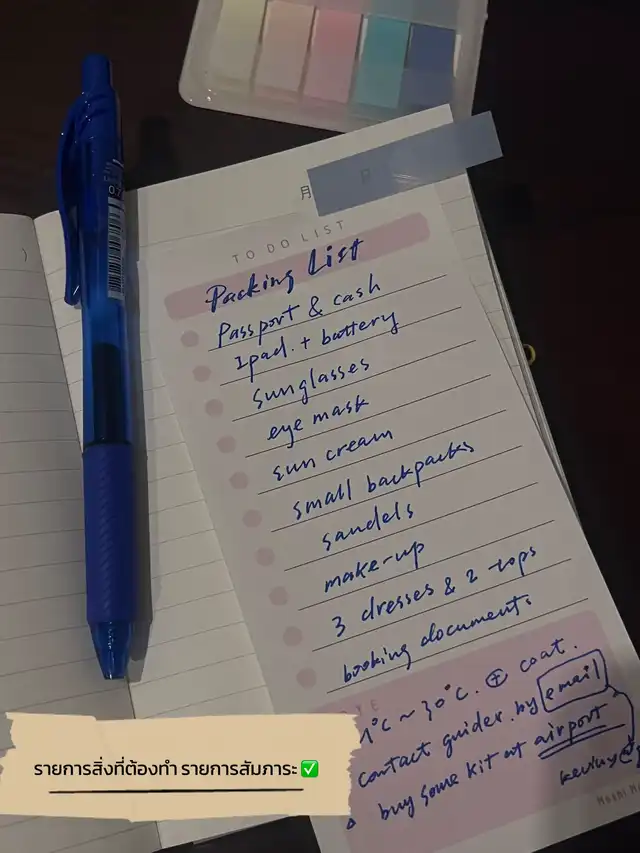 月
TO DO LIST
Packing List
Passport & cash
Ipad. + battery
sunglasses
eye mask
sun cream
small backpacks
sandels
make-up
3 dresses & 2 tops
booking documents
1°C ~ 30°C. ⊕ coat.
contact guider. by email
buy some kit at airport
รายการสิ่งที่ต้องทำ รายการสัมภาระ ✅